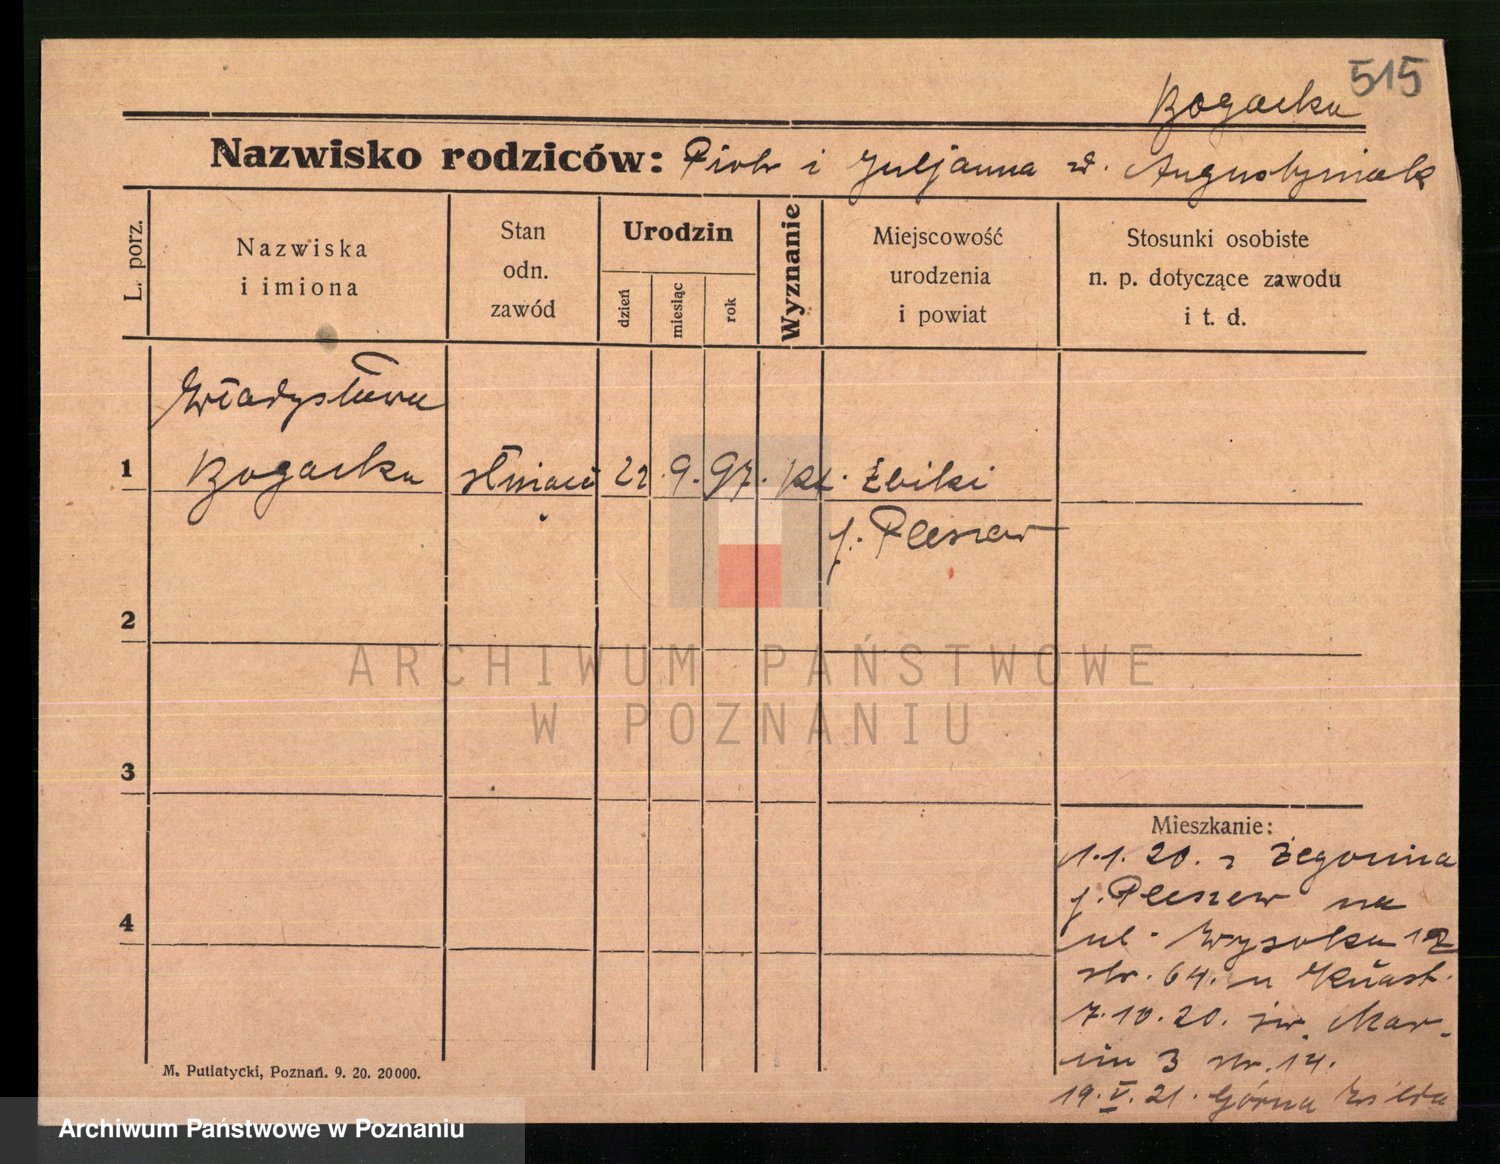 515
Bogacka
Nazwisko rodziców: Piotr i Juljanna z d. Augustyniak
L. porz.
Nazwiska
i imiona
Stan
odn.
zawód
Urodzin
dzień
miesiąc
rok
Wyznanie
Miejscowość
urodzenia
i powiat
Stosunki osobiste
n. p. dotyczące zawodu
i t. d.
Władysława
1 Bogacka 22. 9. 97. kt. Żbiki
p. Pleszew
2
ARCHIWUM PAŃSTWOWE
W POZNANIU
3
Mieszkanie:
1.1.20. z Żegocina
p. Pleszew na
4
ul. Wysoka 12
str. 64. u
7.10.20. św. Mar-
cin 3 str. 14.
19. V. 21. Górna Wilda
M. Putiatycki, Poznań. 9. 20. 20000.
Archiwum Państwowe w Poznaniu